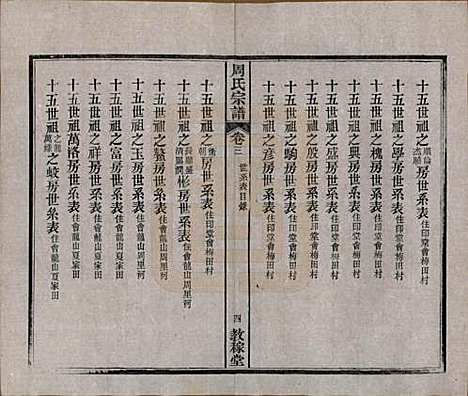 十五世祖之論杰順房世系表住印堂會梅田村
十五世祖之學房世系表住印堂會梅田村
十五世祖之槐房世系表住印堂會梅田村
十五世祖之興房世系表住印堂會梅田村
十五世祖之盛房世系表住印堂會梅田村
十五世祖之殷房世系表住印堂會梅田村
十五世祖之駒房世系表住印堂會梅田村
十五世祖之彥房世系表住印堂會梅田村
周氏宗譜
卷三
世系表目錄
四
敦稼堂
十五世祖之朝房世系表住印堂會梅田村
十五世祖彬房世系表住會龍山周里河
十五世祖之鰲房世系表住會龍山周里河
十五世祖之玉房世系表住會龍山周里河
十五世祖之富房世系表住會龍山夏家田
十五世祖之祥房世系表住會龍山夏家田
十五世祖萬格房世系表住會龍山夏家田
十五世祖之龍萬祿之蛟房世系表住會龍山夏家田